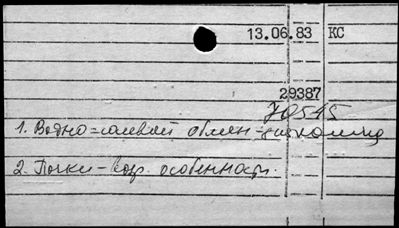 13.06.83 КС
29387
70545
1. Водно=солевой обмен-
2. Почки - возр. особенност.